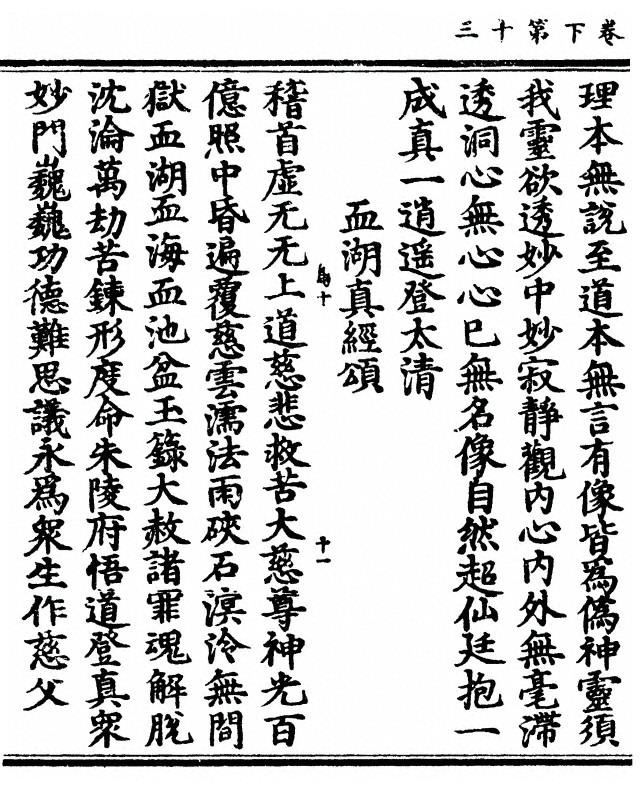 卷下第十三
理本無說至道本無言有像皆爲僞神靈須
我靈欲透妙中妙寂靜觀內心內外無毫滯
透洞心無心心已無名像自然超仙廷抱一
成真一逍遥登太清
血湖真經頌
稽首虛无无上道慈悲救苦大慈尊神光百
億照中昏遍覆慈雲濡法雨硤石溟泠無間
獄血湖血海血池盆玉籙大赦諸罪魂解脫
沈淪萬劫苦鍊形度命朱陵府悟道登真衆
妙門巍巍功德難思議永爲衆生作慈父
十一